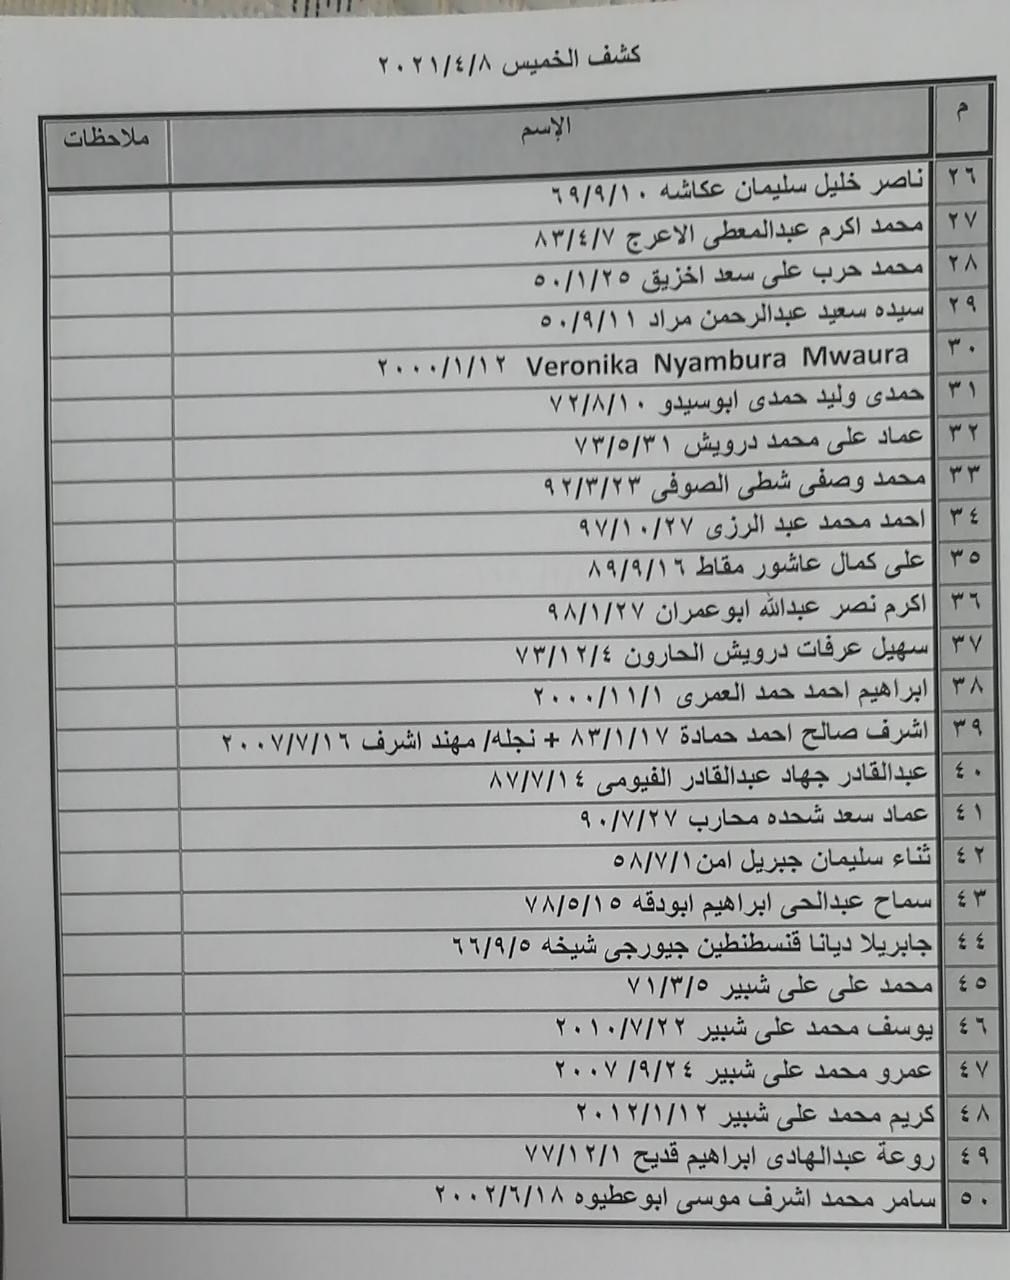 كشف الخميس ٢٠٢١/٤/٨
م الإسم ملاحظات
٢٦ ناصر خليل سليمان عكاشه ٦٩/٩/١٠
٢٧ محمد اكرم عبدالمعطى الاعرج ٨٣/٤/٧
٢٨ محمد حرب على سعد اخزيق ٥٠/١/٢٥
٢٩ سيده سعيد عبدالرحمن مراد ٥٠/٩/١١
٣٠ Veronika Nyambura Mwaura ٢٠٠٠/١/١٢
٣١ حمدى وليد حمدى ابوسيدو ٧٢/٨/١٠
٣٢ عماد على محمد درويش ٧٣/٥/٣١
٣٣ محمد وصفى شطى الصوفى ٩٢/٣/٢٣
٣٤ احمد محمد عبد الرزى ٩٧/١٠/٢٧
٣٥ على كمال عاشور مقاط ٨٩/٩/١٦
٣٦ اكرم نصر عبدالله ابوعمران ٩٨/١/٢٧
٣٧ سهيل عرفات درويش الحارون ٧٣/١٢/٤
٣٨ ابراهيم احمد حمد العمرى ٢٠٠٠/١١/١
٣٩ اشرف صالح احمد حمادة ٨٣/١/١٧ + نجله/ مهند اشرف ٢٠٠٧/٧/١٦
٤٠ عبدالقادر جهاد عبدالقادر الفيومى ٨٧/٧/١٤
٤١ عماد سعد شحده محارب ٩٠/٧/٢٧
٤٢ ثناء سليمان جبريل امن ٥٨/٧/١
٤٣ سماح عبدالحى ابراهيم ابودقه ٧٨/٥/١٥
٤٤ جابريلا ديانا قنسطنطين جيورجى شيخه ٦٦/٩/٥
٤٥ محمد على على شبير ٧١/٣/٥
٤٦ يوسف محمد على شبير ٢٠١٠/٧/٢٢
٤٧ عمرو محمد على شبير ٢٠٠٧/٩/٢٤
٤٨ كريم محمد على شبير ٢٠١٢/١/١٢
٤٩ روعة عبدالهادى ابراهيم قديح ٧٧/١٢/١
٥٠ سامر محمد اشرف موسى ابوعطيوه ٢٠٠٢/٦/١٨